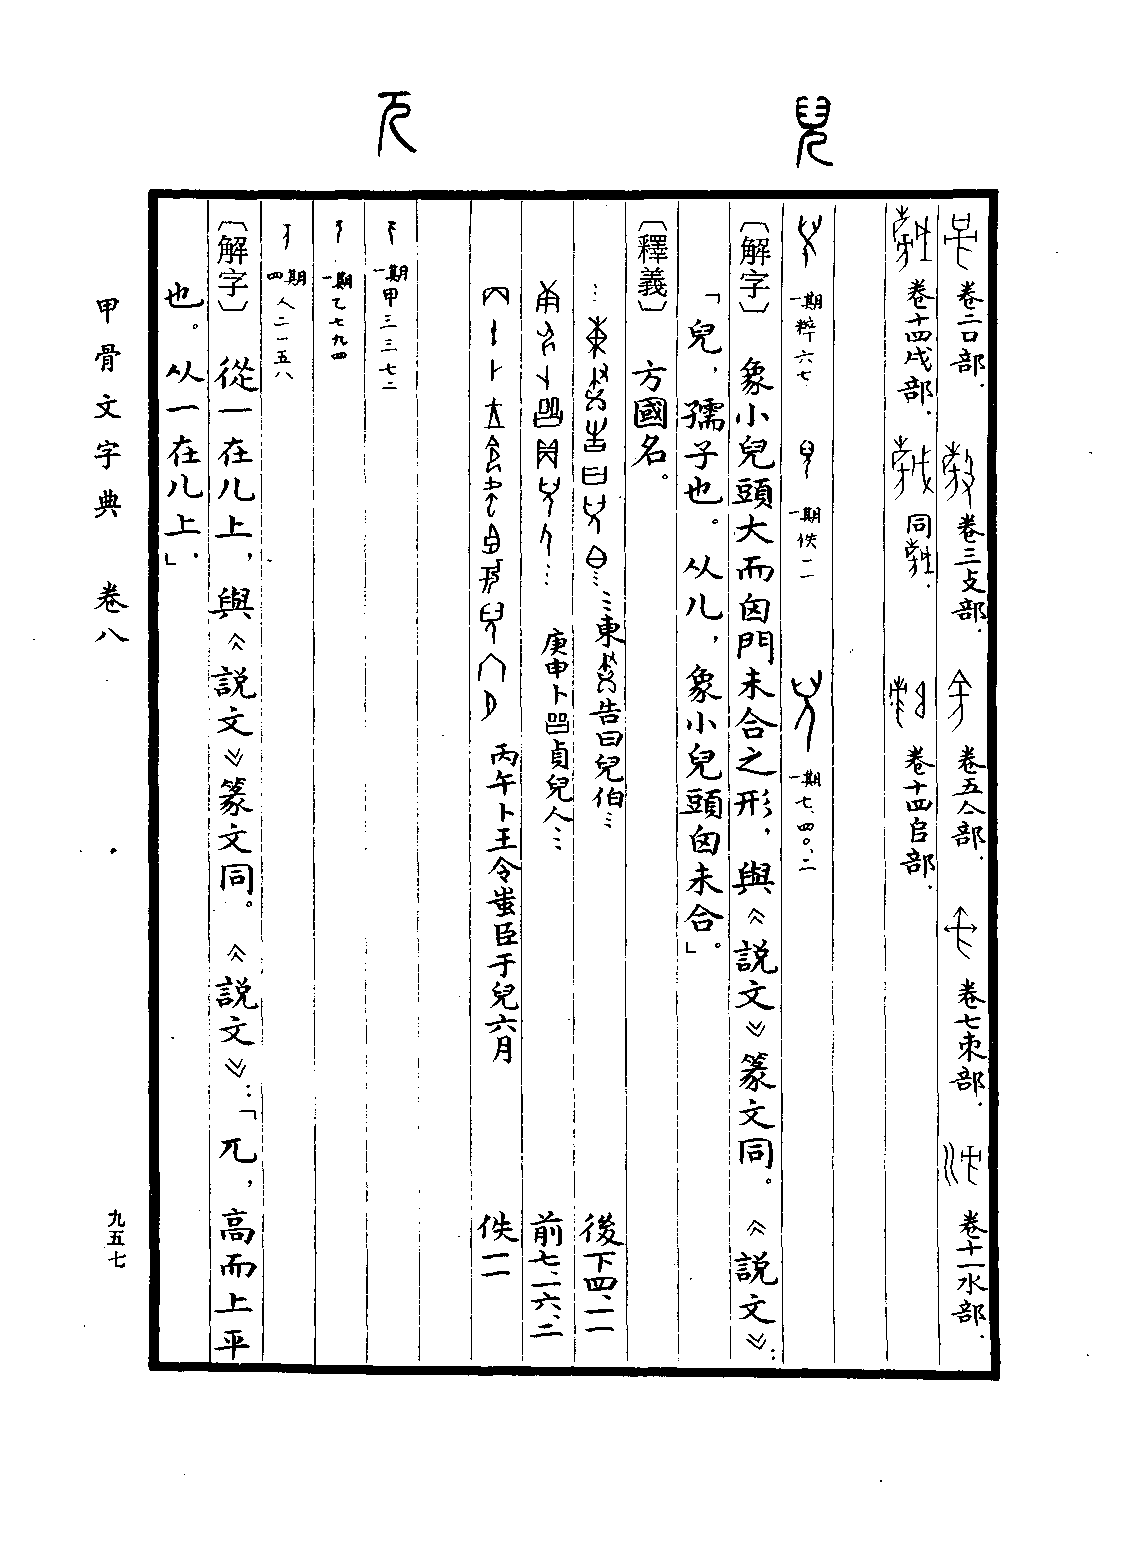 兒
兀
卷二口部．卷三攴部．卷五亼部．卷七朿部．卷十一水部．
卷十四戌部．同．卷十四𠂤部．
一期粹六七 一期佚一一 一期七、四〇、二
〔解字〕象小兒頭大而囟門未合之形，與《說文》篆文同。《說文》：
「兒，孺子也。从儿，象小兒頭囟未合。」
〔釋義〕方國名。
…東告曰兒伯… 後下四、一一
庚申卜貞兒人… 前七、一六、二
丙午卜王令蚩臣于兒六月 佚一一
一期甲三三七二
一期乙七九四
四期人二一五八
〔解字〕從一在儿上，與《說文》篆文同。《說文》：「兀，高而上平
也。从一在儿上．」
甲骨文字典 卷八
九五七